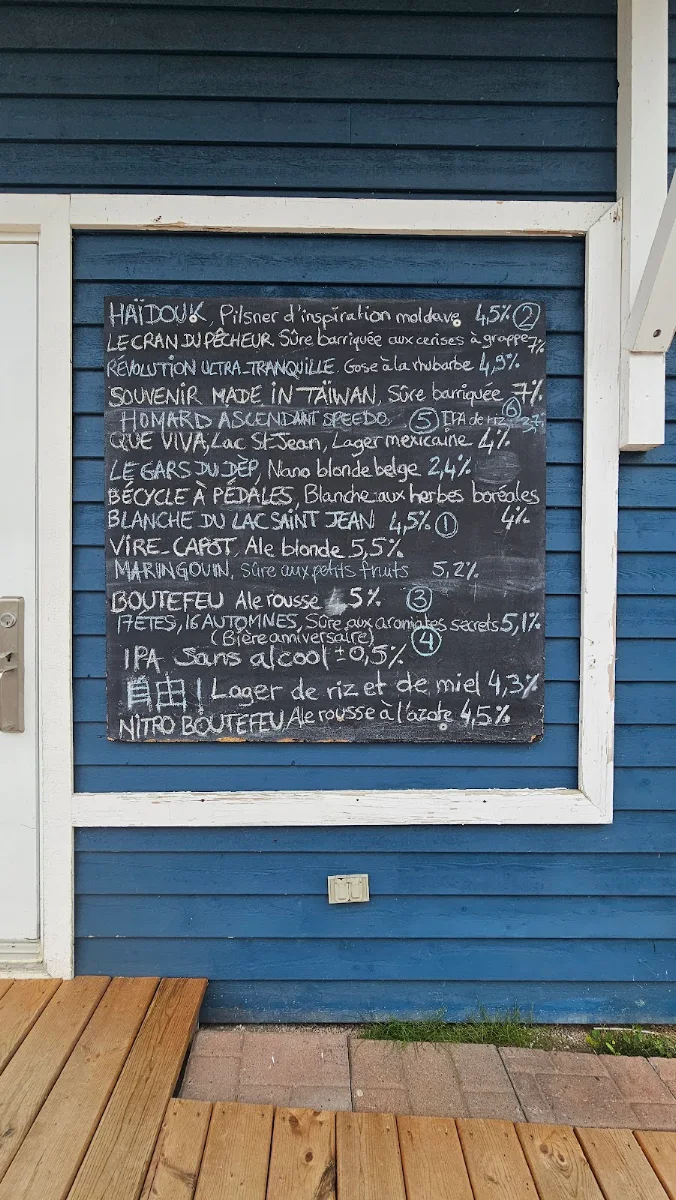 HAÏDOUK, Pilsner d'inspiration moldave 4,5% ②
LE CRAN DU PÊCHEUR, Sûre barriquée aux cerises à grappe 7%
RÉVOLUTION ULTRA-TRANQUILLE. Gose à la rhubarbe 4,9%
SOUVENIR MADE IN TAÏWAN, Sûre barriquée 7%
HOMARD ASCENDANT SPEEDO, ⑤ IPA de riz ⑥
QUE VIVA, Lac St-Jean, Lager mexicaine 4%
LE GARS DU DÈP, Nano blonde belge 2,4%
BÉCYCLE À PÉDALES, Blanche aux herbes boréales
4%
BLANCHE DU LAC SAINT JEAN 4,5% ①
VIRE-CAPOT, Ale blonde 5,5%
MARINGOUIN, Sûre aux petits fruits 5,2%
BOUTEFEU Ale rousse 5% ③
17 ÉTÉS, 16 AUTOMNES, Sûre aux aromates secrets 5,1%
(Bière anniversaire) ④
IPA Sans alcool ±0,5%
自由! Lager de riz et de miel 4,3%
NITRO BOUTEFEU Ale rousse à l'azote 4,5%